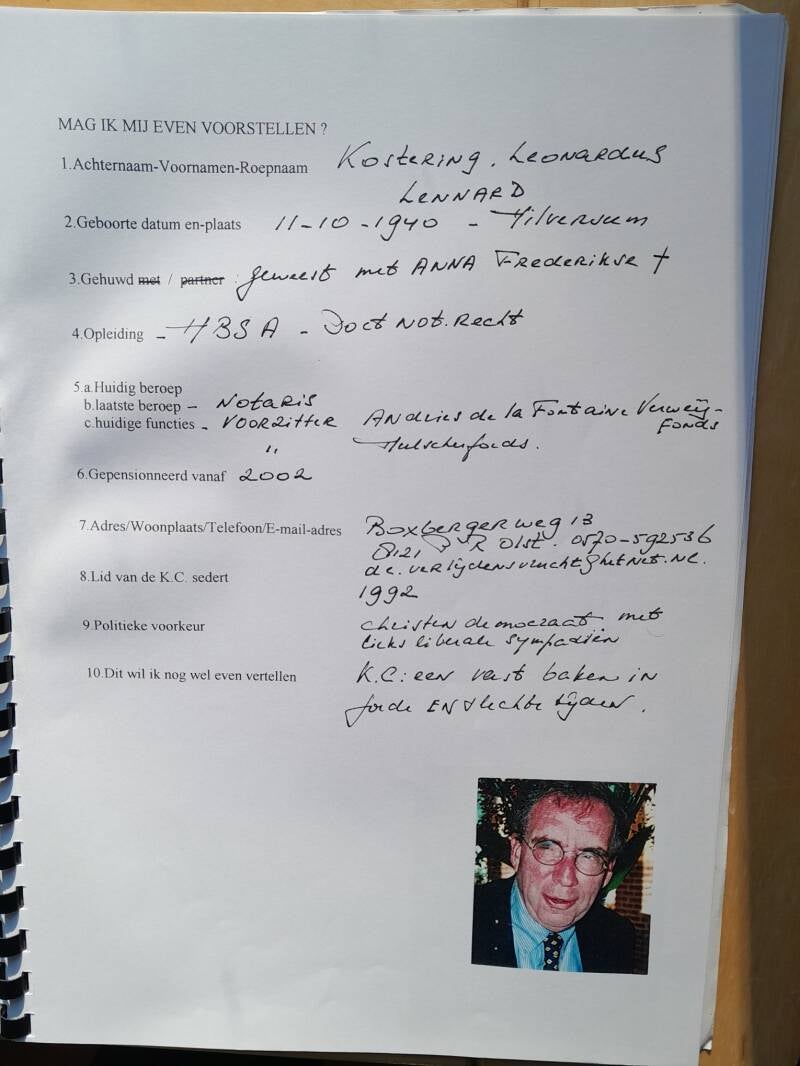 MAG IK MIJ EVEN VOORSTELLEN ?
1.Achternaam-Voornamen-Roepnaam Kostering. Leonardus
LENNARD
2.Geboorte datum en-plaats 11-10-1940 - Hilversum
3.Gehuwd met / partner : geweest met ANNA Frederikse †
4.Opleiding - HBSA - Doct Not. Recht
5.a.Huidig beroep
b.laatste beroep - Notaris
c.huidige functies - VOORZITTER Andries de la Fontaine Verweij-
fonds
" Hulscherfonds.
6.Gepensionneerd vanaf 2002
7.Adres/Woonplaats/Telefoon/E-mail-adres Boxbergerweg 13
8121 PR Olst. 0570-592536
8.Lid van de K.C. sedert de.verlijdensvlucht@hetnet.nl.
1992
9.Politieke voorkeur christen democraat met
links liberale sympatiën
10.Dit wil ik nog wel even vertellen K.C: een vast baken in
goede EN slechte tijden.